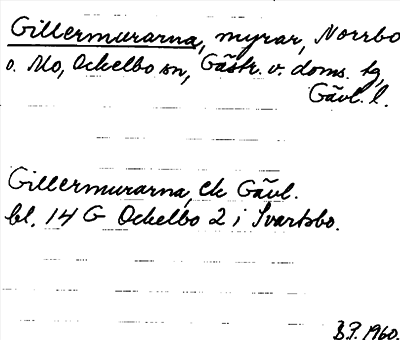 Gillermurarna, myrar, Norrbo
o. Mo, Ockelbo sn, Gästr. v. doms. tg,
Gävl. l.
Gillermurarna, ek Gävl.
bl. 14 G Ockelbo 2 i Svartsbo.
B.P. 1960.